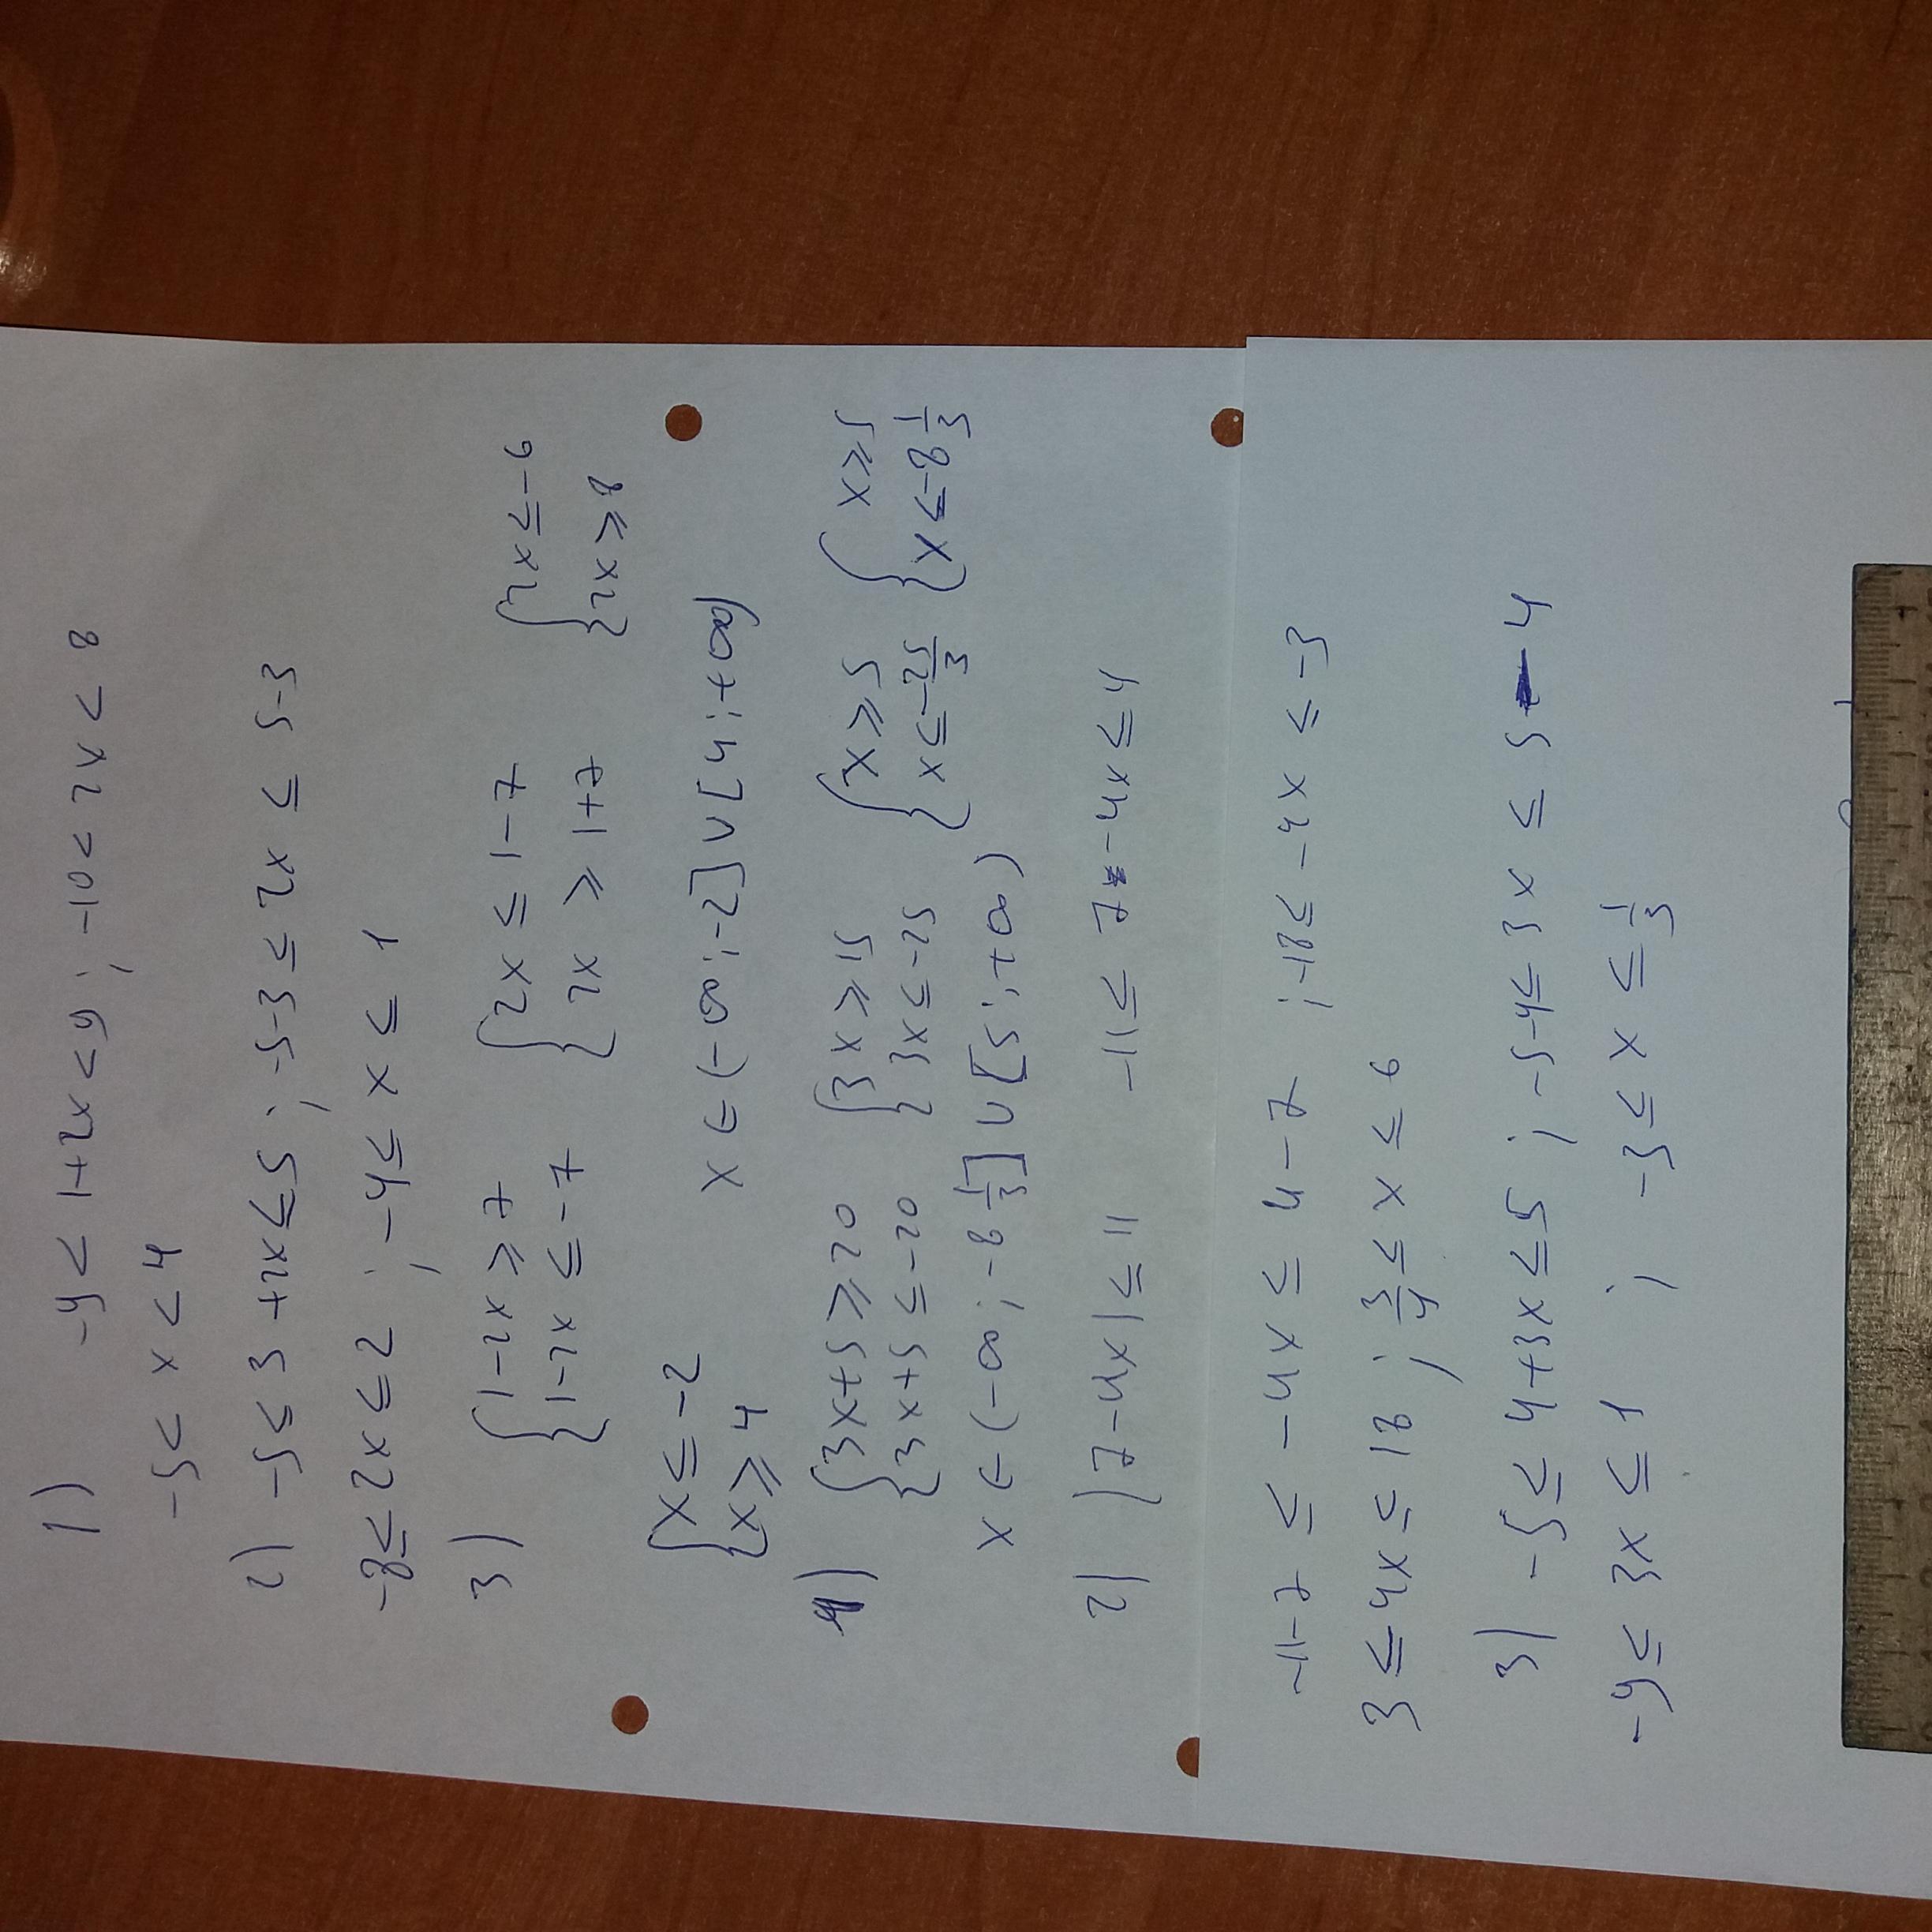 1) -9 < 1+2x < 9 ; -10 < 2x < 8
-5 < x < 4
2) -5 ≤ 3 + 2x ≤ 5 ; -5-3 ≤ 2x ≤ 5-3
-8 ≤ 2x ≤ 2 ; -4 ≤ x ≤ 1
3) { 1-2x ≥ 7 { 2x ≤ 1-7 { 2x ≤ -6
{ 1-2x ≤ -7 { 2x ≥ 1+7 { 2x ≥ 8
{ x ≤ -2
{ x ≥ 4 x ∈ (-∞ ; -2] ∪ [4 ; +∞)
4) { 3x+5 ≥ 20 { 3x ≥ 15 { x ≥ 5 { x ≥ 5
{ 3x+5 ≤ -20 { 3x ≤ -25 { x ≤ -25/3 { x ≤ -8 1/3
x ∈ (-∞ ; -8 1/3] ∪ [5 ; +∞)
2) |7-4x| ≤ 11 -11 ≤ 7 -4x ≤ 4
-11-7 ≤ -4x ≤ 4-7 ; -18 ≤ -4x ≤ -3
3 ≤ 4x ≤ 18 ; 3/4 ≤ x ≤ 6
3) -5 ≤ 4+3x ≤ 5 ; -5-4 ≤ 3x ≤ 5-4
-9 ≤ 3x ≤ 1 ; -3 ≤ x ≤ 1/3